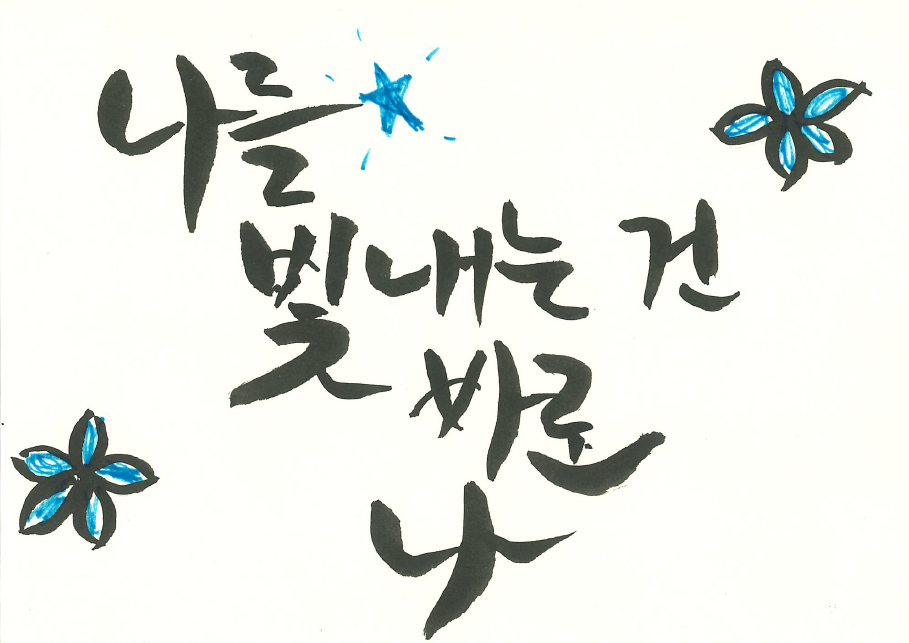 나를
빛내는 건
바로
나